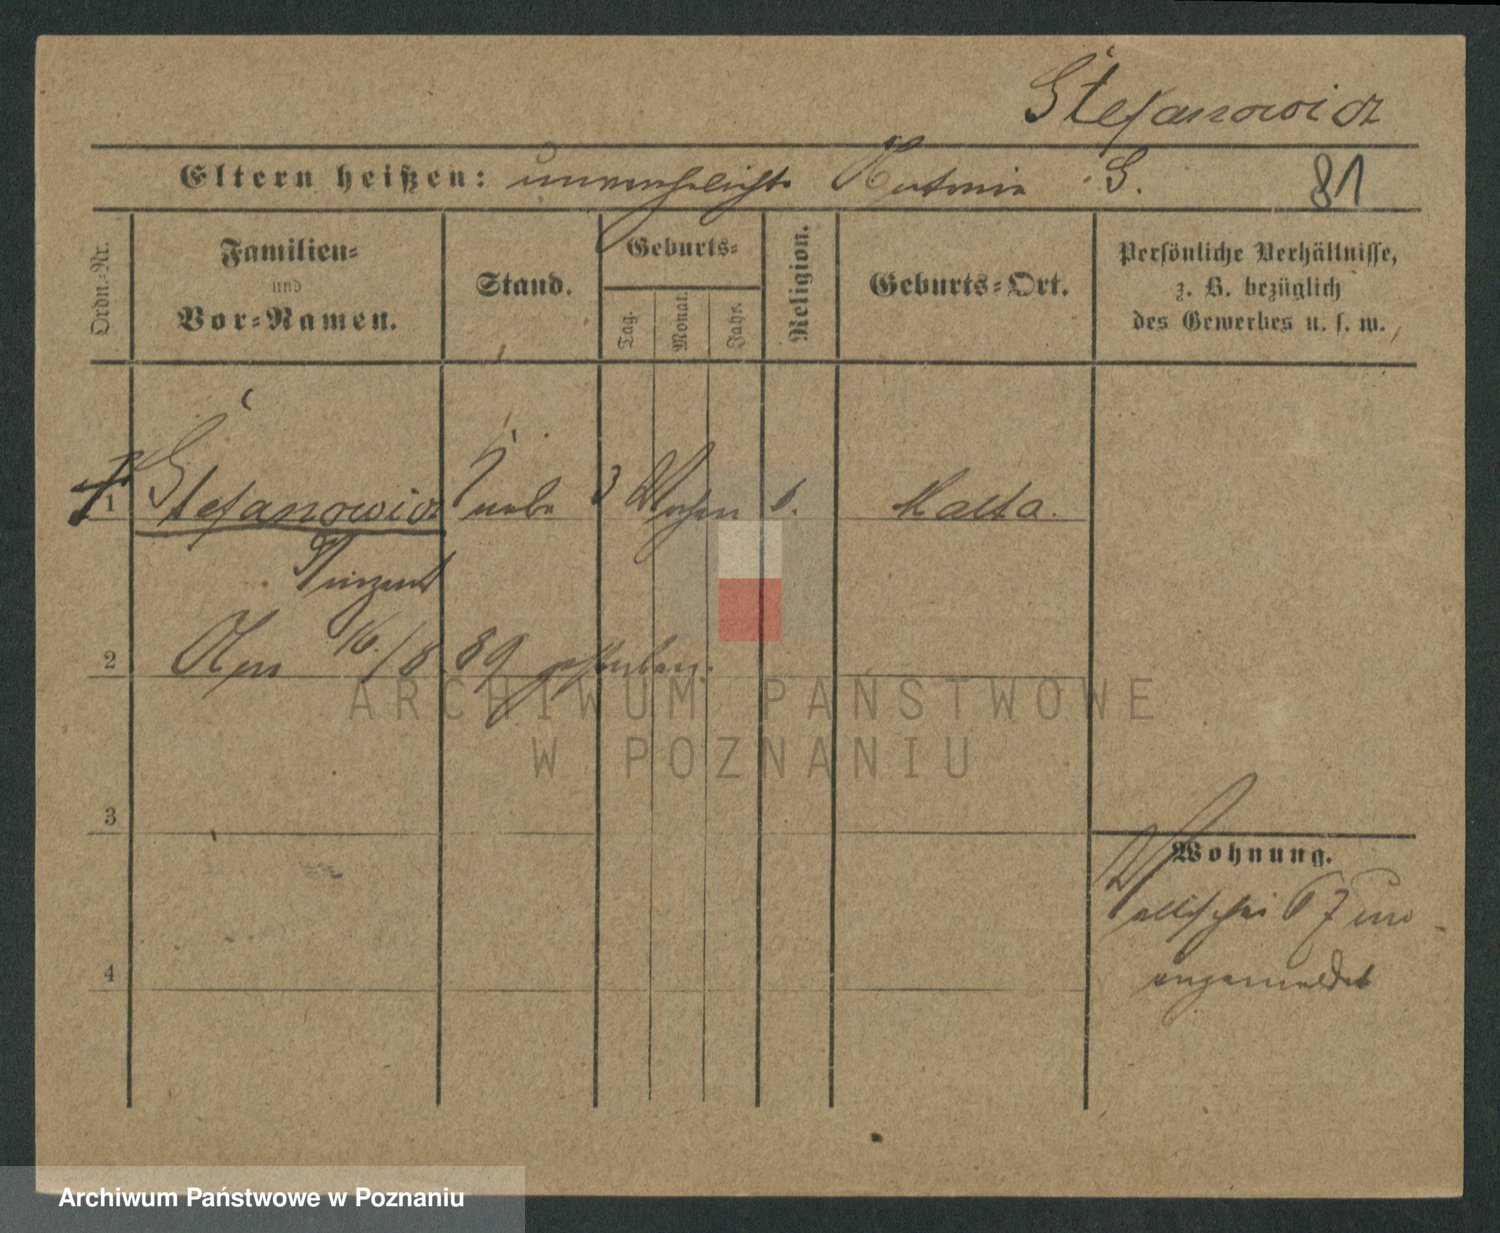 Stefanowicz
Eltern heißen: unverehelichte Antonie S. 81
Ordn.-Nr.
Familien-
und
Vor-Namen.
Stand.
Geburts-
Tag.
Monat.
Jahr.
Religion.
Geburts-Ort.
Persönliche Verhältnisse,
z. B. bezüglich
des Gewerbes u. s. w.
1 Stefanowicz Knabe 3 Wochen k. Malta.
Vinzent
2 Am 16./8 89 gestorben.
3
4
Wohnung.
Wallischei 67
angemeldet
ARCHIWUM PAŃSTWOWE
W POZNANIU
Archiwum Państwowe w Poznaniu